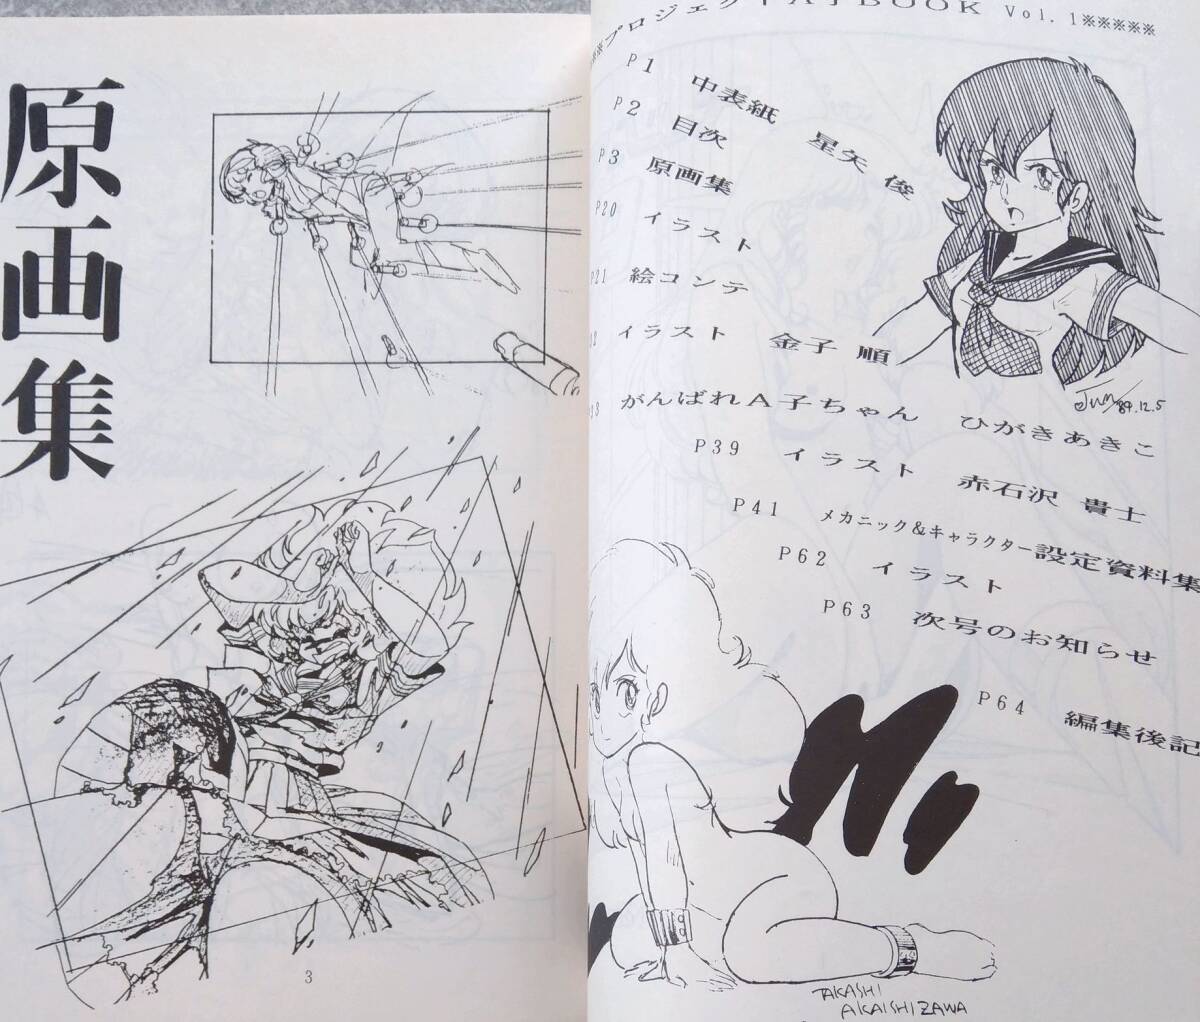 原画集
3
※プロジェクトA子BOOK Vol.1※※※※※
P1 中表紙 星矢 俊
P2 目次
P3 原画集
P20 イラスト
P21 絵コンテ
イラスト 金子 順
がんばれA子ちゃん ひがきあきこ
P39 イラスト 赤石沢 貴士
P41 メカニック&キャラクター設定資料集
P62 イラスト
P63 次号のお知らせ
P64 編集後記
Jun '89.12.5
TAKASHI
AKAISHIZAWA